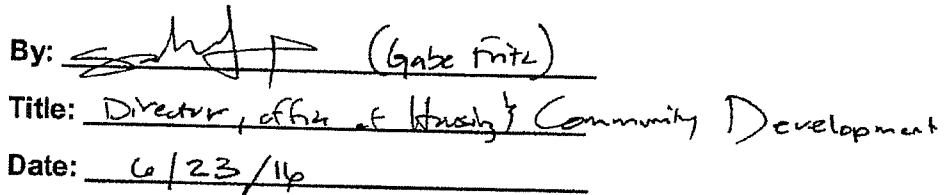 By: (Gabe Fritz)
Title: Director, office of Housing & Community Development
Date: 6/23/16